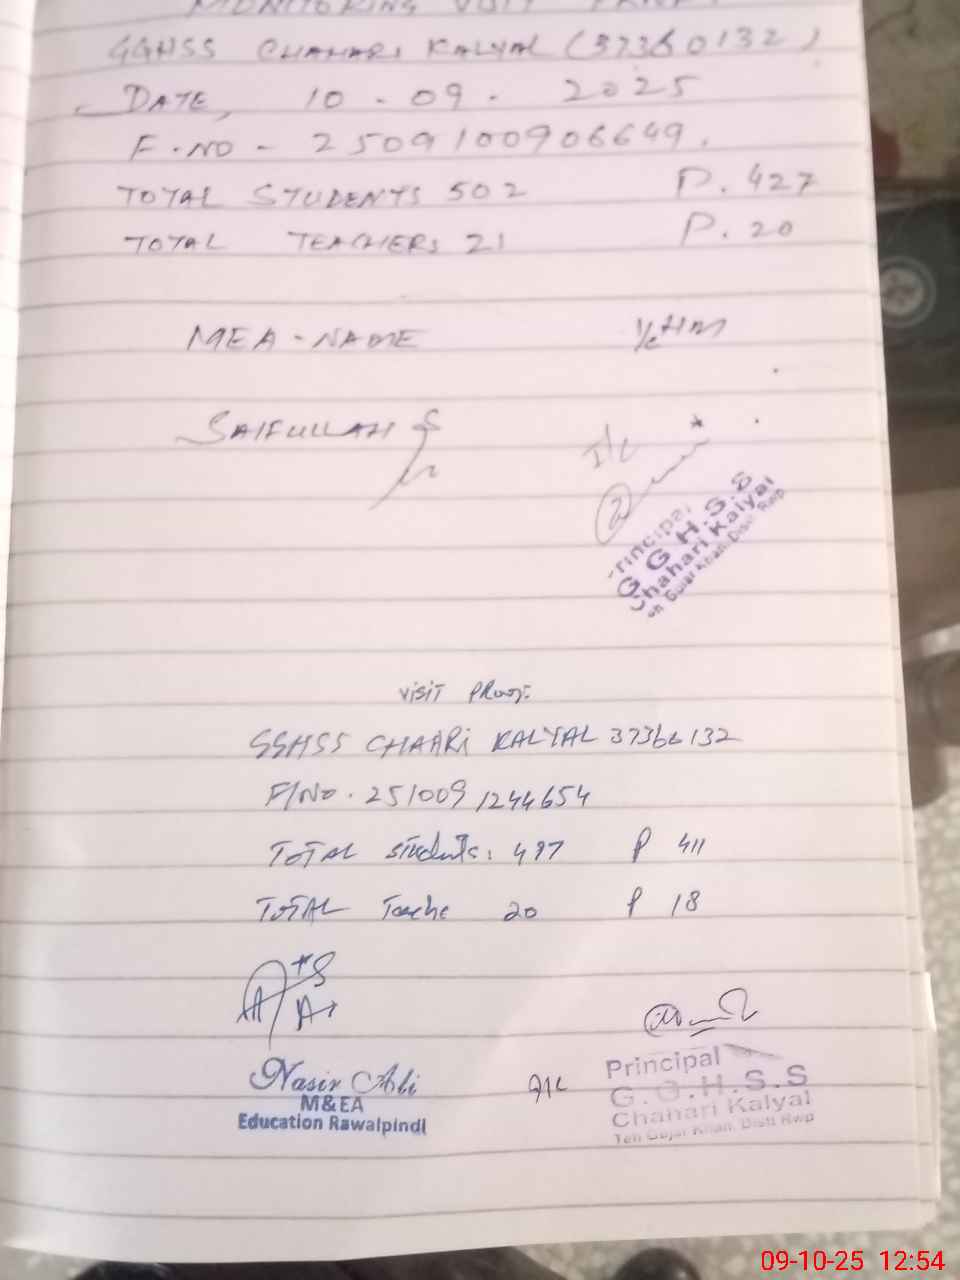 MONITORING VISIT PROOF.
GGHSS CHAHARI KALYAL (37360132)
DATE, 10 - 09 - 2025
F.NO - 2509100906649.
TOTAL STUDENTS 502 P. 427
TOTAL TEACHERS 21 P. 20
MEA - NAME I/C HM
SAIFULLAH
I/C
Principal
G.G.H.S.S
Chahari Kalyal
Teh Gujar Khan, Distt Rwp
VISIT PROOF:
GGHSS CHAARI KALYAL 37360132
F/NO. 251009 1244654
TOTAL students: 497 P 411
TOTAL Teache 20 P 18
Nasir Ali
M&EA
Education Rawalpindi
I/C
Principal
G.G.H.S.S
Chahari Kalyal
Teh Gujar Khan, Distt Rwp
09-10-25 12:54